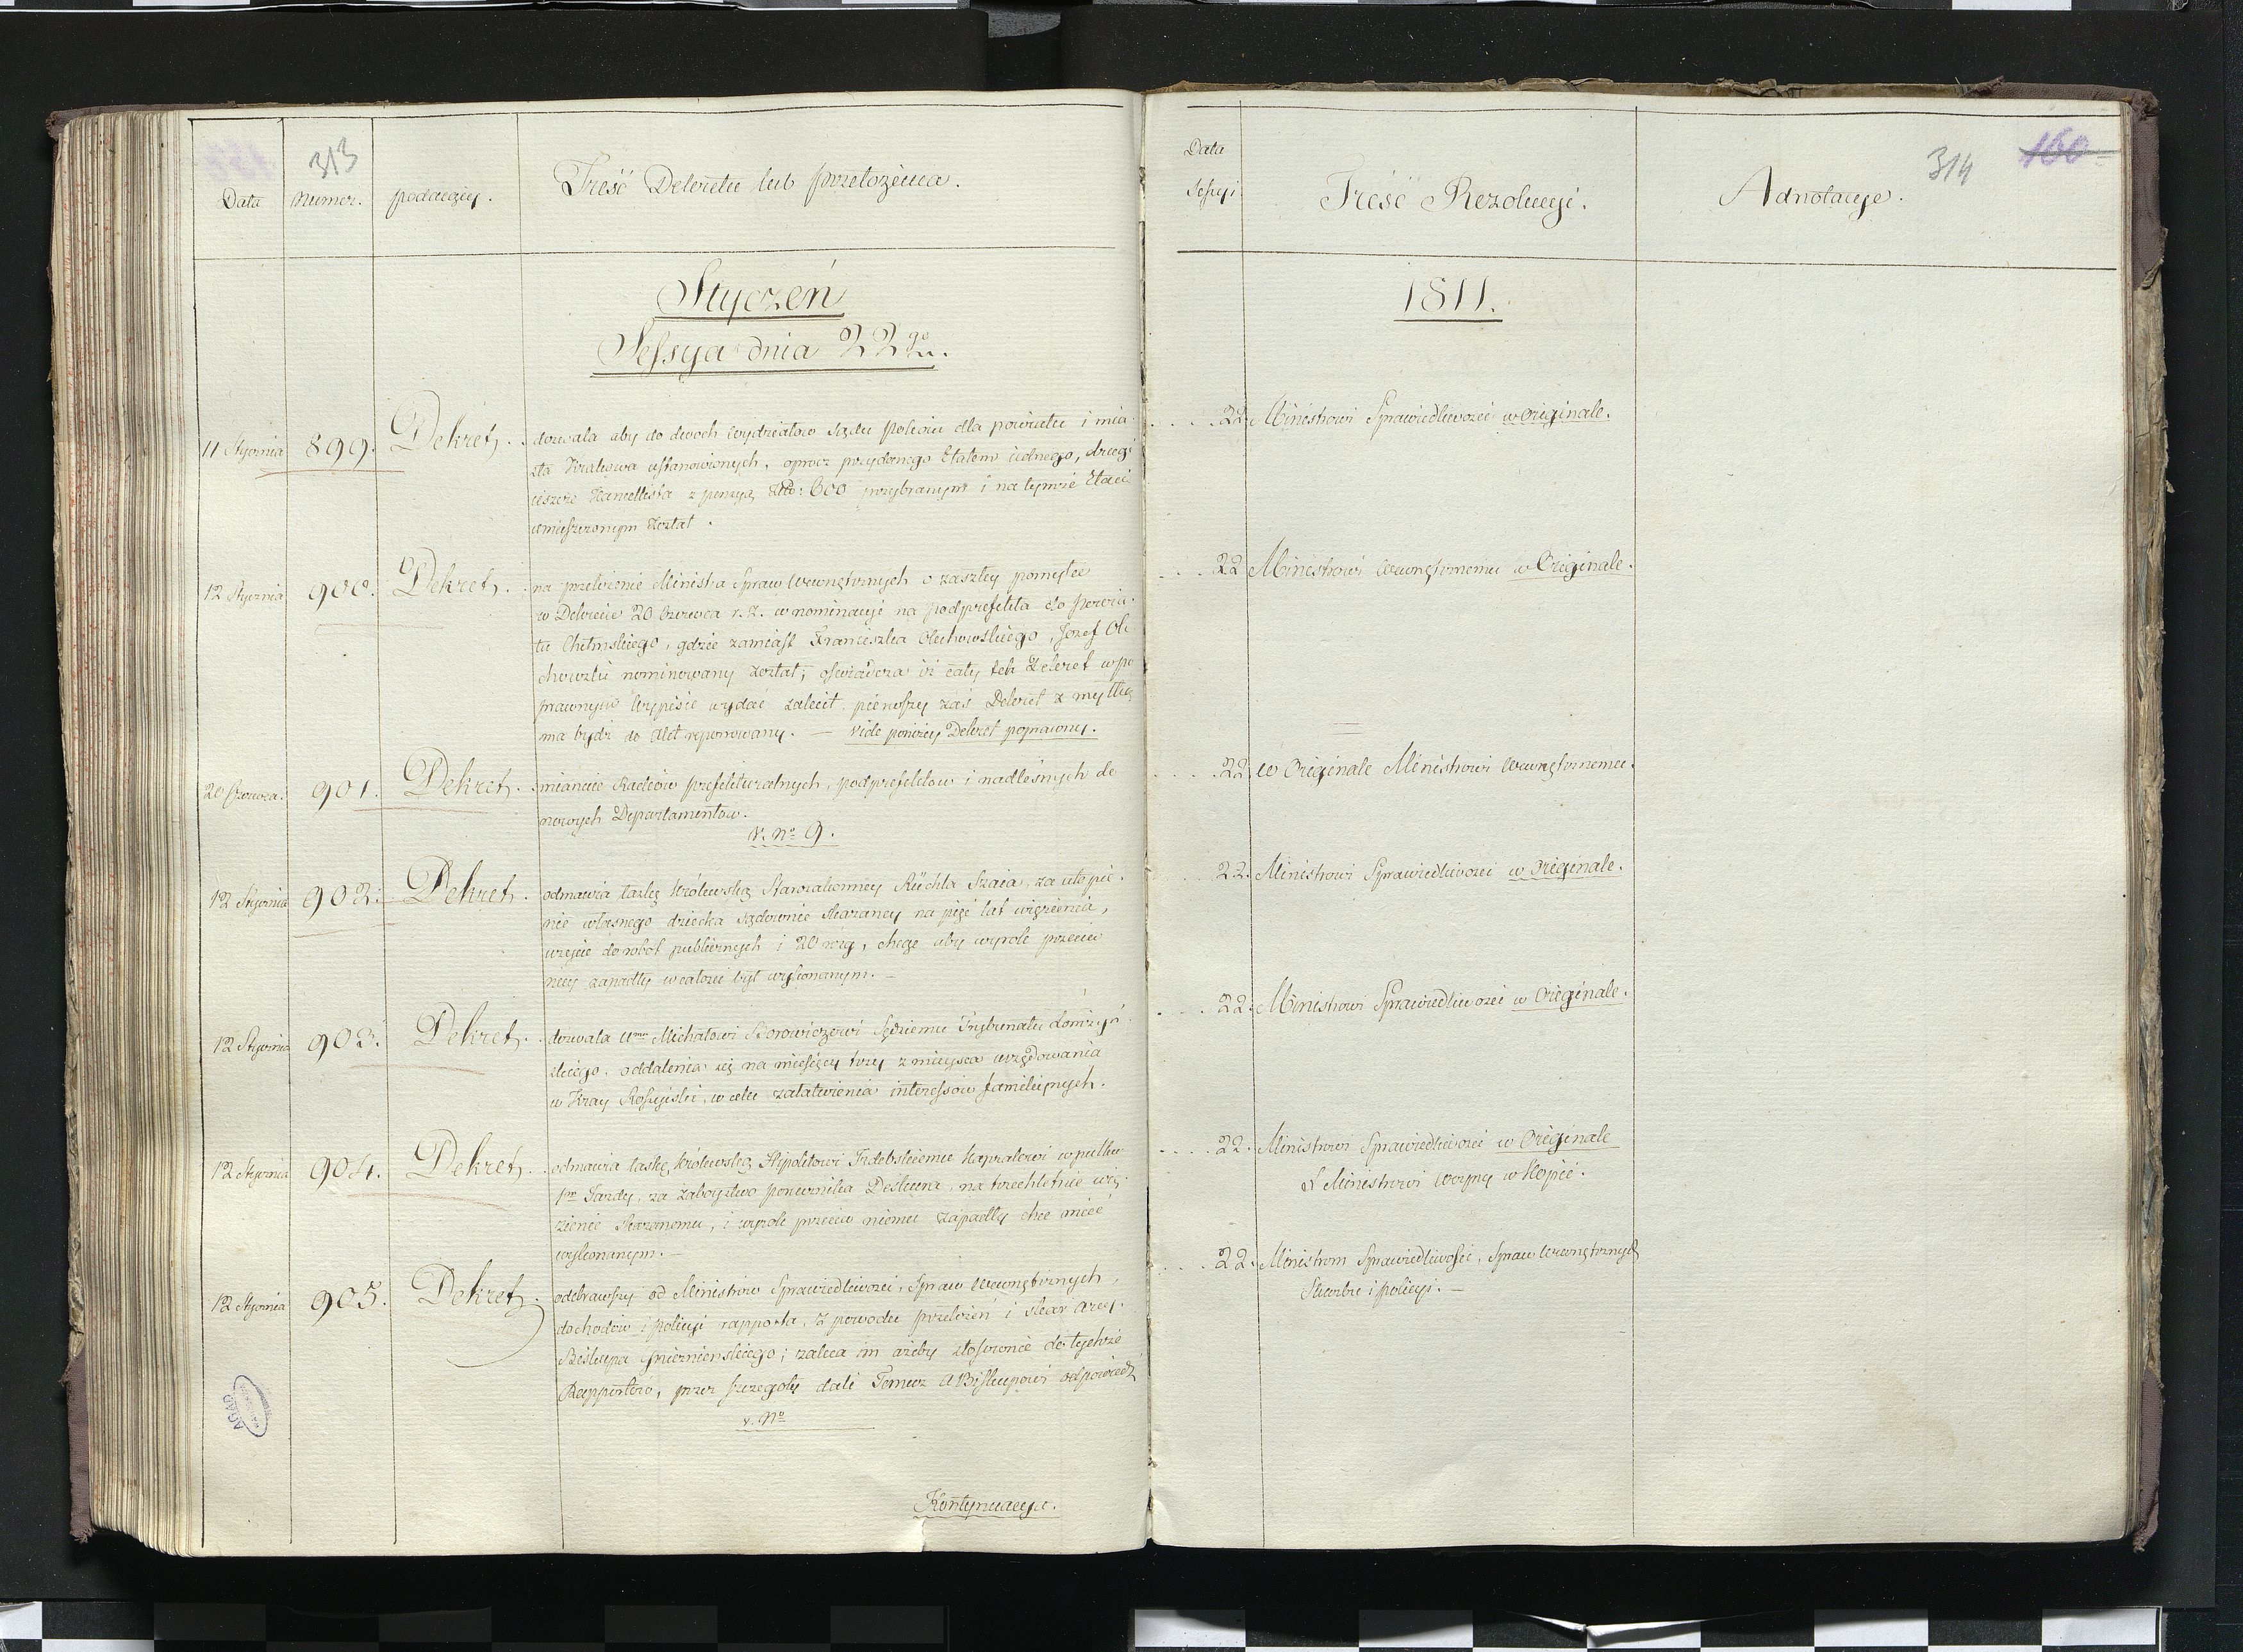 313
Data
Numer.
podaiący.
Treść Dekretu lub przełożenia.
Styczeń
Sessya dnia 22go
11 Stycznia
899.
Dekret.
dozwala aby do dwóch wydziałow Sądu Policyi dla powiatu i mia-
sta Krakowa ustanowionych, oprocz przydanego Etatem iednego, drugi
ieszcze Kancellista z pensyą złło: 600 przybranym i na tymże Etacie
umieszczonym został.
12 Stycznia
900.
Dekret.
na przełożenie Ministra Spraw Wewnętrznych o zaszłey pomyłce
w Dekrecie 20 Czerwca r. z. w nominacyi na podprefekta do powia-
tu Chełmskiego, gdzie zamiast Franciszka Olechowskiego, Jozef Ole
chowski nominowany został; oświadcza iż cały ten Dekret w po
prawnym Wypisie wydać zalecił, pierwszy zaś Dekret z myłką
ma bydź do Akt reponowany. — Vide poniżey Dekret poprawny.
20 Czerwca.
901.
Dekret.
mianuie Radców prefekturalnych, podprefektow i nadleśnych do
nowych Departamentow.
v. No 9.
12 Stycznia
902.
Dekret.
odmawia łaskę Królewską Starozakonney Rüchla Szaia, za utopie-
nie własnego dziecka sądownie skazaney na pięć lat więzienia,
użycie do robot publicznych i 20 rózg, chcąc aby wyrok przeciw
niey zapadły w całości był wykonanym. —
12 Stycznia
903.
Dekret.
dozwala Wmu Michałowi Borowiczowi Sędziemu Trybunału Łomżyń-
skiego, oddalenia się na miesięcy trzy z mieysca urzędowania
w Kray Rossyiski, w celu załatwienia interessów familiynych.
12 Stycznia
904.
Dekret.
odmawia łaskę Królewską Hipolitowi Trdebskiemu Kapralowi w pułku
1m Jazdy, za zaboystwo porucznika Deskura, na trzechletnie wię-
zienie skazanemu, i wyrok przeciw niemu zapadły chce mieć
wykonanym. —
12 Stycznia
905.
Dekret.
odebrawszy od Ministrów Sprawiedliwości, Spraw Wewnętrznych,
dochodów i policyi rapporta, z powodu przełożeń i skar Arcy-
Biskupa Gnieznienskiego; zaleca im ażeby stosownie do tychże
Rapportów, przez szczegoły dali Temuż ABiskupowi odpowiedź
v. No
Kontynuacya.
AGAD
Data
Sessyi
Treść Rezolucyi.
Adnotacye.
314
160
1811.
22. Ministrowi Sprawiedliwości w Originale.
22 Ministrowi Wewnętrznemu w Originale.
22. w Originale Ministrowi Wewnętrznemu.
22. Ministrowi Sprawiedliwości w Originale.
22. Ministrowi Sprawiedliwości w Originale.
22. Ministrowi Sprawiedliwości w Originale
& Ministrowi Woyny w Kopie.
22. Ministrom Sprawiedliwości, Spraw Wewnętrznych
Skarbu i policyi. —